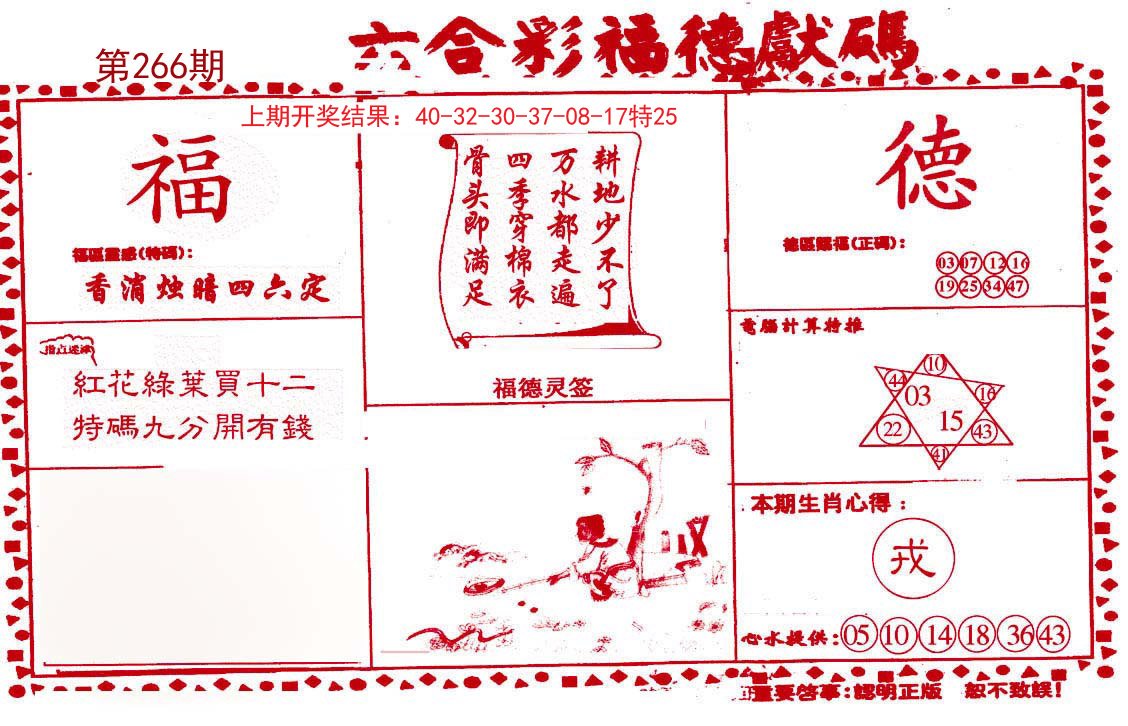 六合彩福德獻碼
第266期
上期开奖结果：40-32-30-37-08-17特25
福
福區靈感(特碼)：
香消烛暗四六定
指点迷津
紅花綠葉買十二
特碼九分開有錢
耕地少不了
万水都走遍
四季穿棉衣
骨头即满足
福德灵签
德
德區賜福(正碼)：
03 07 12 16
19 25 34 47
電腦計算特推
10
44 03 16
22 15 43
41
本期生肖心得：
戎
心水提供：05 10 14 18 36 43
重要啓事：認明正版 恕不致誤！